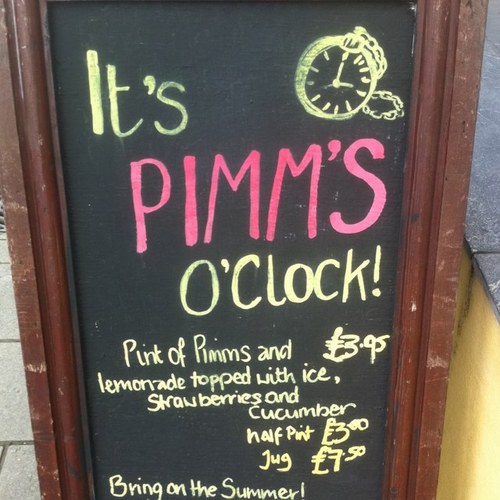 It's
PIMM'S
O'Clock!
Pint of Pimms and £3.95
lemonade topped with ice,
Strawberries and
Cucumber
half Pint £3.00
Jug £7.50
Bring on the Summer!